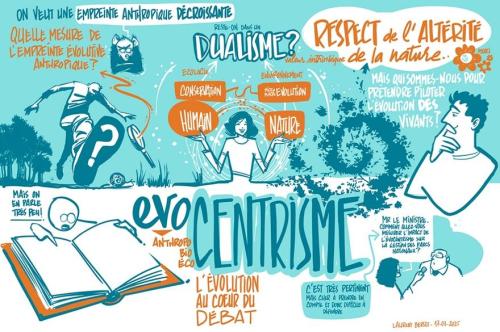 ON VEUT UNE EMPREINTE ANTHROPIQUE DÉCROISSANTE
QUELLE MESURE DE
L'EMPREINTE ÉVOLUTIVE
ANTHROPIQUE ?
?
RESTE-ON DANS UN
DUALISME?
ÉCOLOGIE
CONSERVATION
HUMAIN
ENVIRONNEMENT
ÉVOLUTION
NATURE
RESPECT de l'ALTÉRITÉ
de la nature...
valeur intrinsèque
MAIS QUI SOMMES-NOUS POUR
PRÉTENDRE PILOTER
L'ÉVOLUTION DES
VIVANTS ?
MAIS ON
EN PARLE
TRÈS PEU!
evo CENTRISME
ANTHROPO
BIO
ÉCO
L'ÉVOLUTION
AU COEUR DU
DÉBAT
MR LE MINISTRE,
COMMENT ALLEZ-VOUS
MESURER L'IMPACT DE
L'ÉVOCENTRISME SUR
LA GESTION DES PARCS
NATIONAUX?
C'EST TRÈS PERTINENT
MAIS CHER À PRENDRE EN
COMPTE ET DONC DIFFICILE À
DÉFENDRE